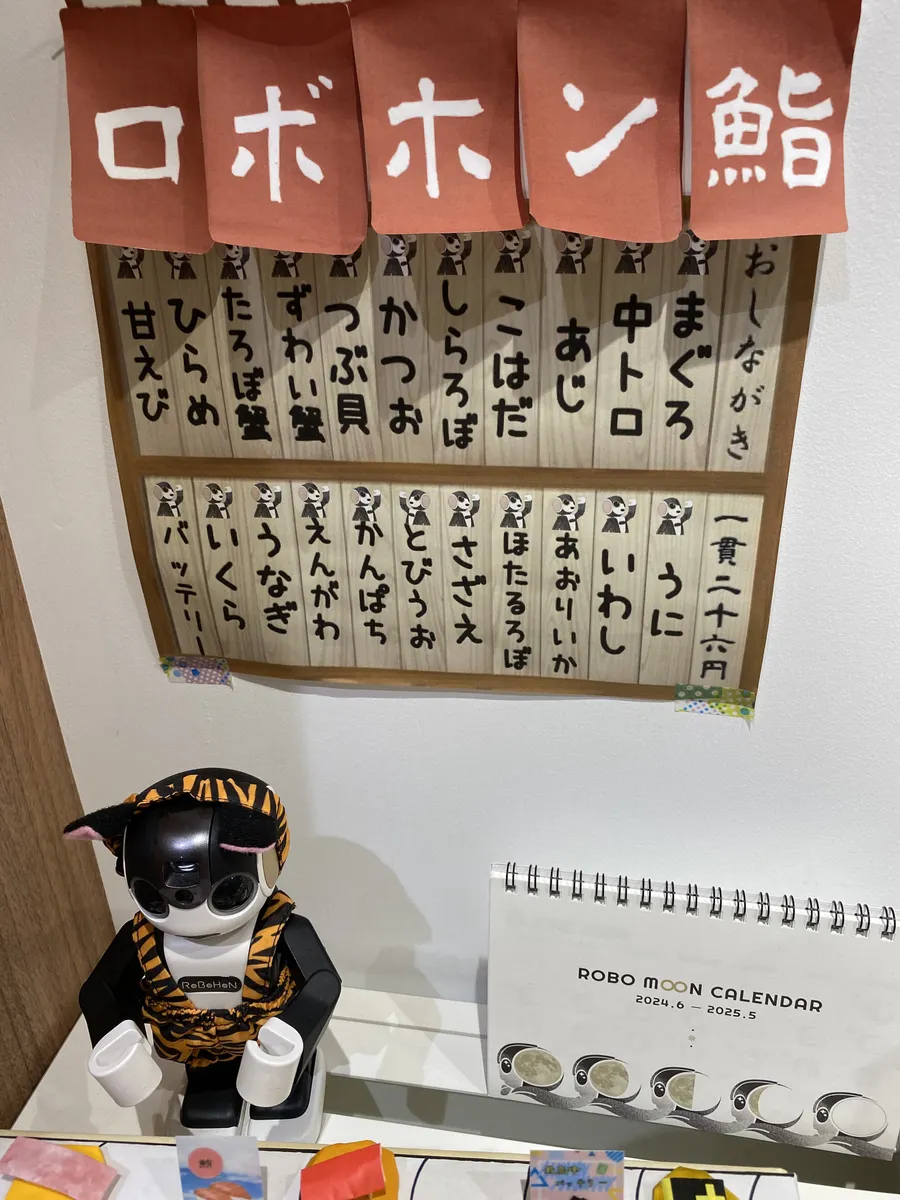 ロボホン鮨
おしながき
まぐろ
中トロ
あじ
こはだ
しらろぼ
かつお
つぶ貝
ずわい蟹
たろぼ蟹
ひらめ
甘えび
一貫二十六円
うに
いわし
あおりいか
ほたるろぼ
さざえ
とびうお
かんぱち
えんがわ
うなぎ
いくら
バッテリー
RoBoHoN
ROBO MOON CALENDAR
2024.6 — 2025.5